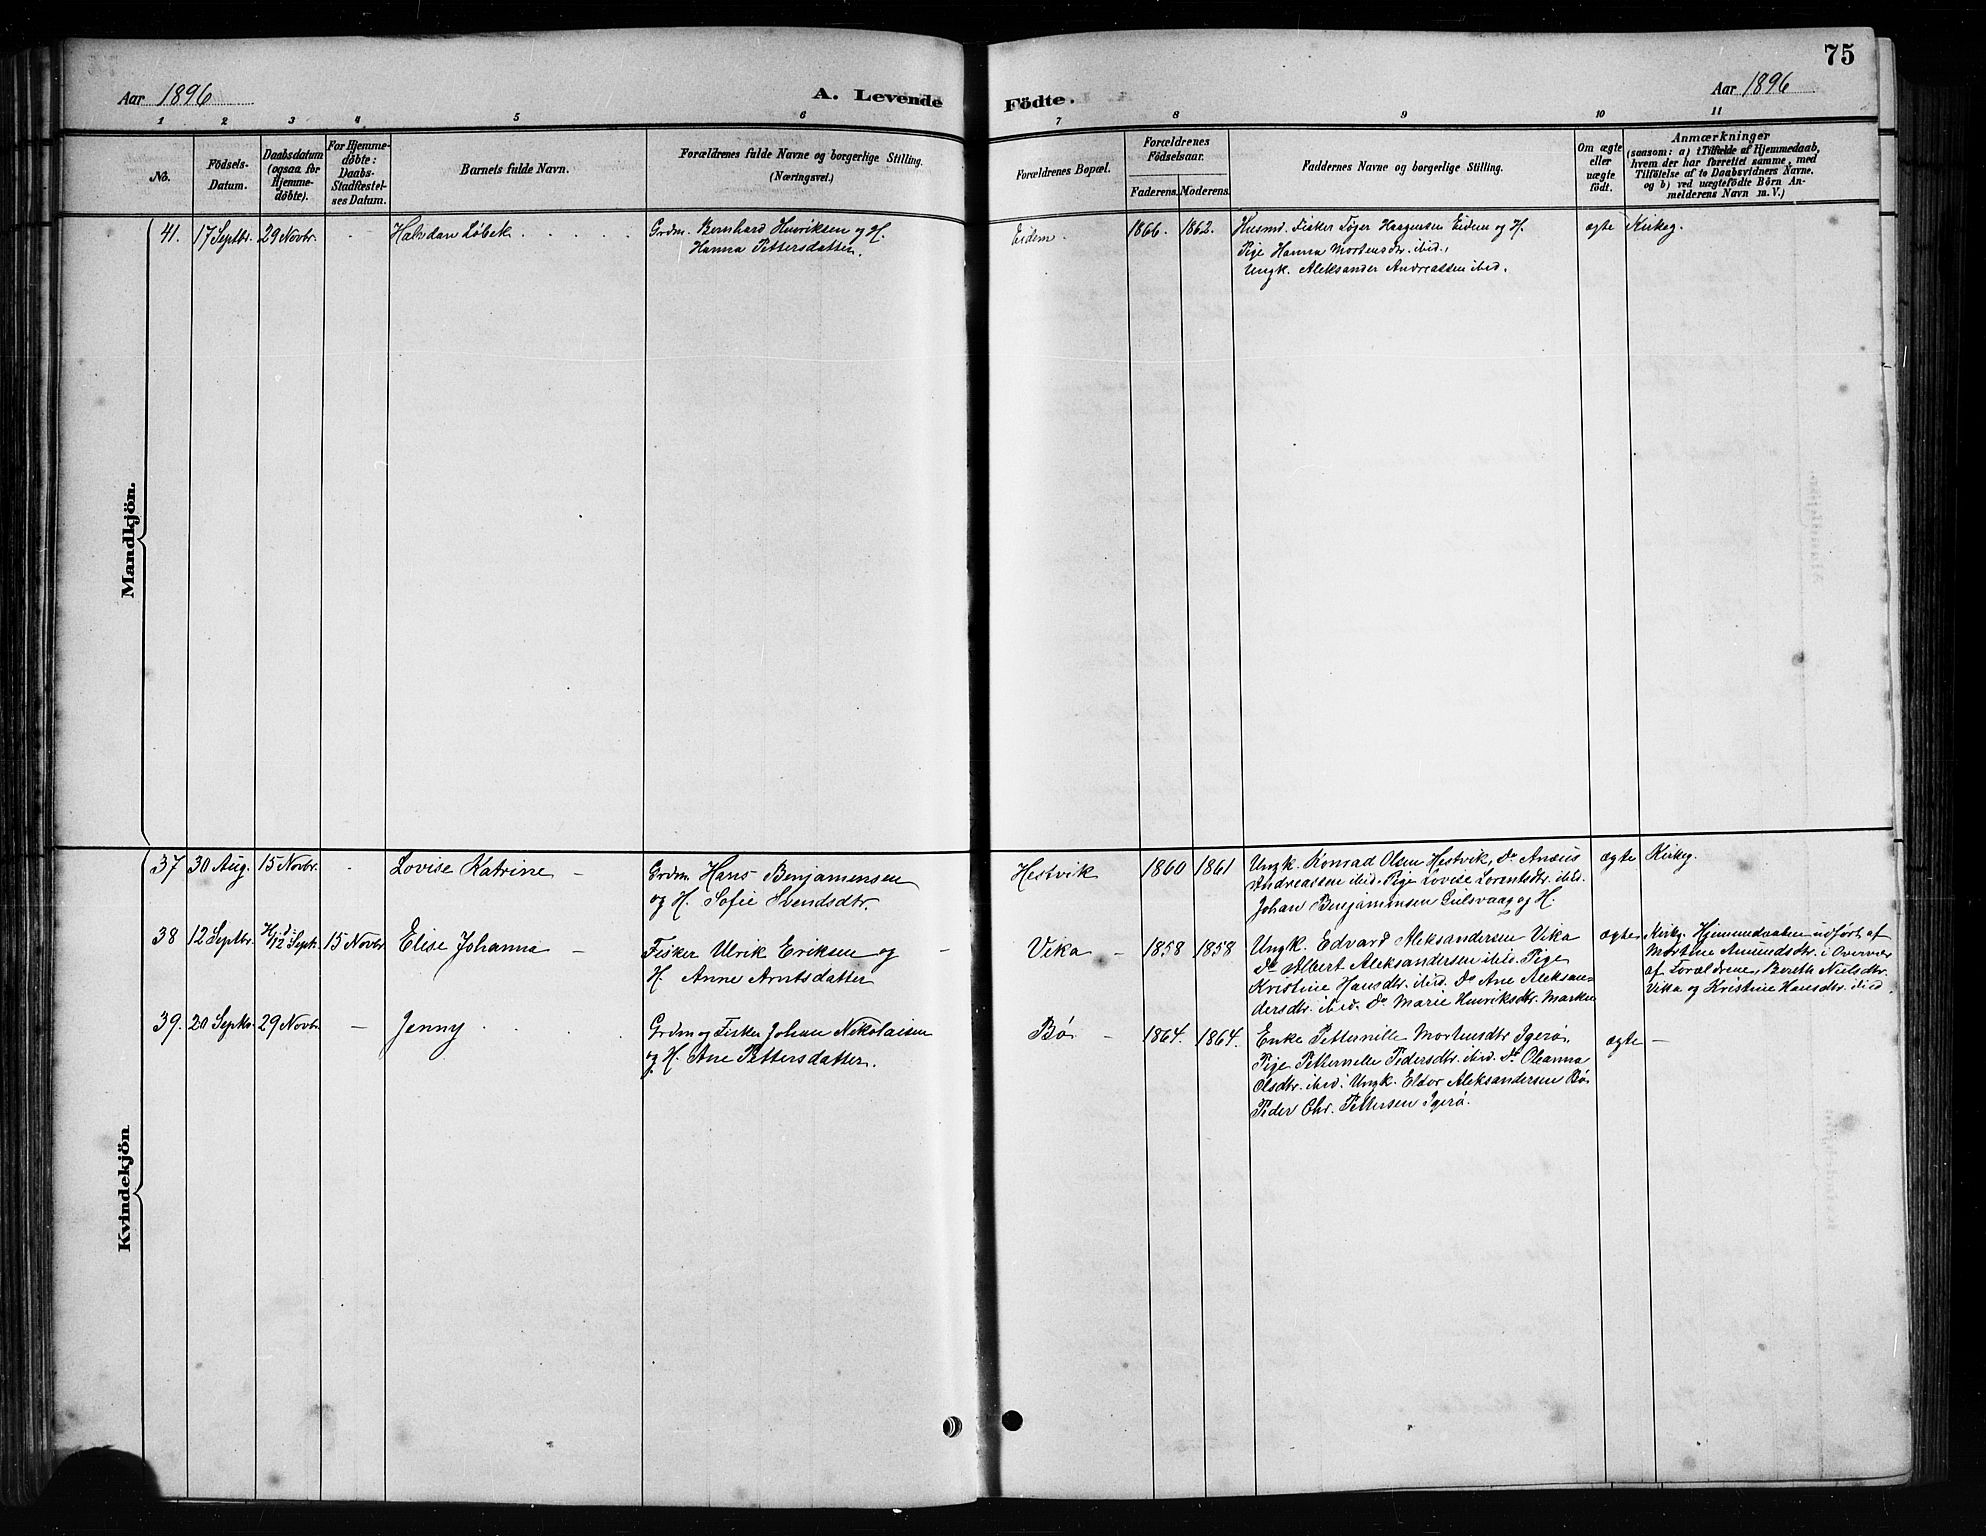 75
Aar 1896
A. Levende
Födte.
Aar 1896
1 2 3 4 5 6 7 8 9 10 11
No.
Födsels-
Datum.
Daabsdatum
(ogsaa for
Hjemme-
döbte).
For Hjemme-
döbte:
Daabs-
Stadfæstel-
ses Datum.
Barnets fulde Navn.
Forældrenes fulde Navne og borgerlige Stilling.
(Næringsvei.)
Forældrenes Bopæl.
Forældrenes
Födselsaar.
Faderens. Moderens.
Faddernes Navne og borgerlige Stilling.
Om ægte
eller
uægte
födt.
Anmærkninger
(saasom: a) i Tilfælde af Hjemmedaab,
hvem der har forrettet samme, med
Tilföielse af to Daabsvidners Navne.
og b) ved uægtefödte Börn An-
melderens Navn m. V.)
Mandkjön.
41. 17 Septbr. 29 Novbr. - Halvdan Løbek Grdm. Bernhard Henriksen og H.
Hanna Pettersdatter.
Eidem. 1866. 1862. Husmd. Fisker Tøger Haagensen Eidem og H.
Pige Hanna Mortensdtr. ibid.,
Ungk. Aleksander Andreassen ibid.
ægte Kirkeg.
Kvindekjön
37 30 Aug. 15 Novbr. - Lovise Katrine - Grdm. Hans Benjamensen
og H. Sofie Svendsdtr.
Hestvik 1860 1861 Ungk. Konrad Olsen Hestvik, do Anæus
Andreassen ibid. Pige Lovise Lorentsdtr. ibid.
Johan Benjaminsen og H.
ægte Kirkeg.
38 12 Septbr. H. d. 12 Sept. 15 Novbr Elise Johanna - Fisker Ulrik Eriksen og -
H. Anne Arntsdatter
Vika - 1858 1858 Ungk. Edvard Aleksandersen Vika
do Albert Aleksandersen ibid. Pige
Kristine Hansdtr. ibid. do Ane Aleksan-
dersdtr. ibid. do Marie Henriksdtr. Marken
ægte Kirkg. Hjemmedaaben udført af
Mortine Amundsdtr. i Overvær
af Forældrene, Bereth Nielsdtr.
Vika og Kristine Hansdtr. ibid.
39. 20 Septbr. 29 Novbr - Jenny Grdm og Fisker Johan Nikolaisen
og H. Ane Pettersdatter.
Bø - 1864. 1864. Enke Petternille Mortensdtr Igerø,
Pige Petternelle Pedersdtr. ibid. do Oleanna
Olsdtr. ibid. Ungk. Eldor Aleksandersen Bø,
Peder Chr. Pettersen Igerø.
ægte -